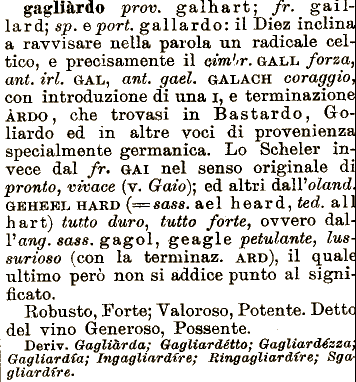 gagliàrdo prov. galhart; fr. gail-
lard; sp. e port. gallardo: il Diez inclina
a ravvisare nella parola un radicale cel-
tico, e precisamente il cimbr. GALL forza,
ant. irl. GAL, ant. gael. GALACH coraggio,
con introduzione di una I, e terminazione
ÀRDO, che trovasi in Bastardo, Go-
liardo ed in altre voci di provenienza
specialmente germanica. Lo Scheler in-
vece dal fr. GAI nel senso originale di
pronto, vivace (v. Gaio); ed altri dall'oland.
GEHEEL HARD (=sass. ael heard, ted. all
hart) tutto duro, tutto forte, ovvero dal-
l'ang. sass. gagol, geagle petulante, lus-
surioso (con la terminaz. ARD), il quale
ultimo però non si addice punto al signi-
ficato.
Robusto, Forte; Valoroso, Potente. Detto
del vino Generoso, Possente.
Deriv. Gagliàrda; Gagliardétto; Gagliardézza;
Gagliardía; Ingagliardíre; Ringagliardíre; Sga-
gliardíre.